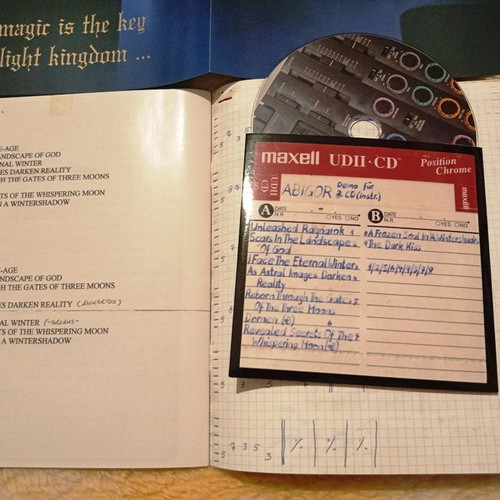 magic is the key
light kingdom ...
E-AGE
ANDSCAPE OF GOD
NAL WINTER
ES DARKEN REALITY
H THE GATES OF THREE MOONS
TS OF THE WHISPERING MOON
N A WINTERSHADOW
E-AGE
NDSCAPE OF GOD
GH THE GATES OF THREE MOONS
ES DARKEN REALITY
AL WINTER
TS OF THE WHISPERING MOON
A WINTERSHADOW
maxell UDII·CD™ Position Chrome
UDII
maxell
ABIGOR Demo für 2 CD (instr.)
A DATE N.R. ○YES ○NO
B DATE N.R. ○YES ○NO
Unleashed Ragnarok
Scars In The Landscape
Of God
I Face The Eternal Winter
As Astral Images Darken
Reality
Reborn Through The Gates
Of The Three Moons
Dornen
Revealed Secrets Of The
Whispering Moon
A Frozen Soul In A Wintershadow
The Dark Kiss
5 7 3 5 3
% % %